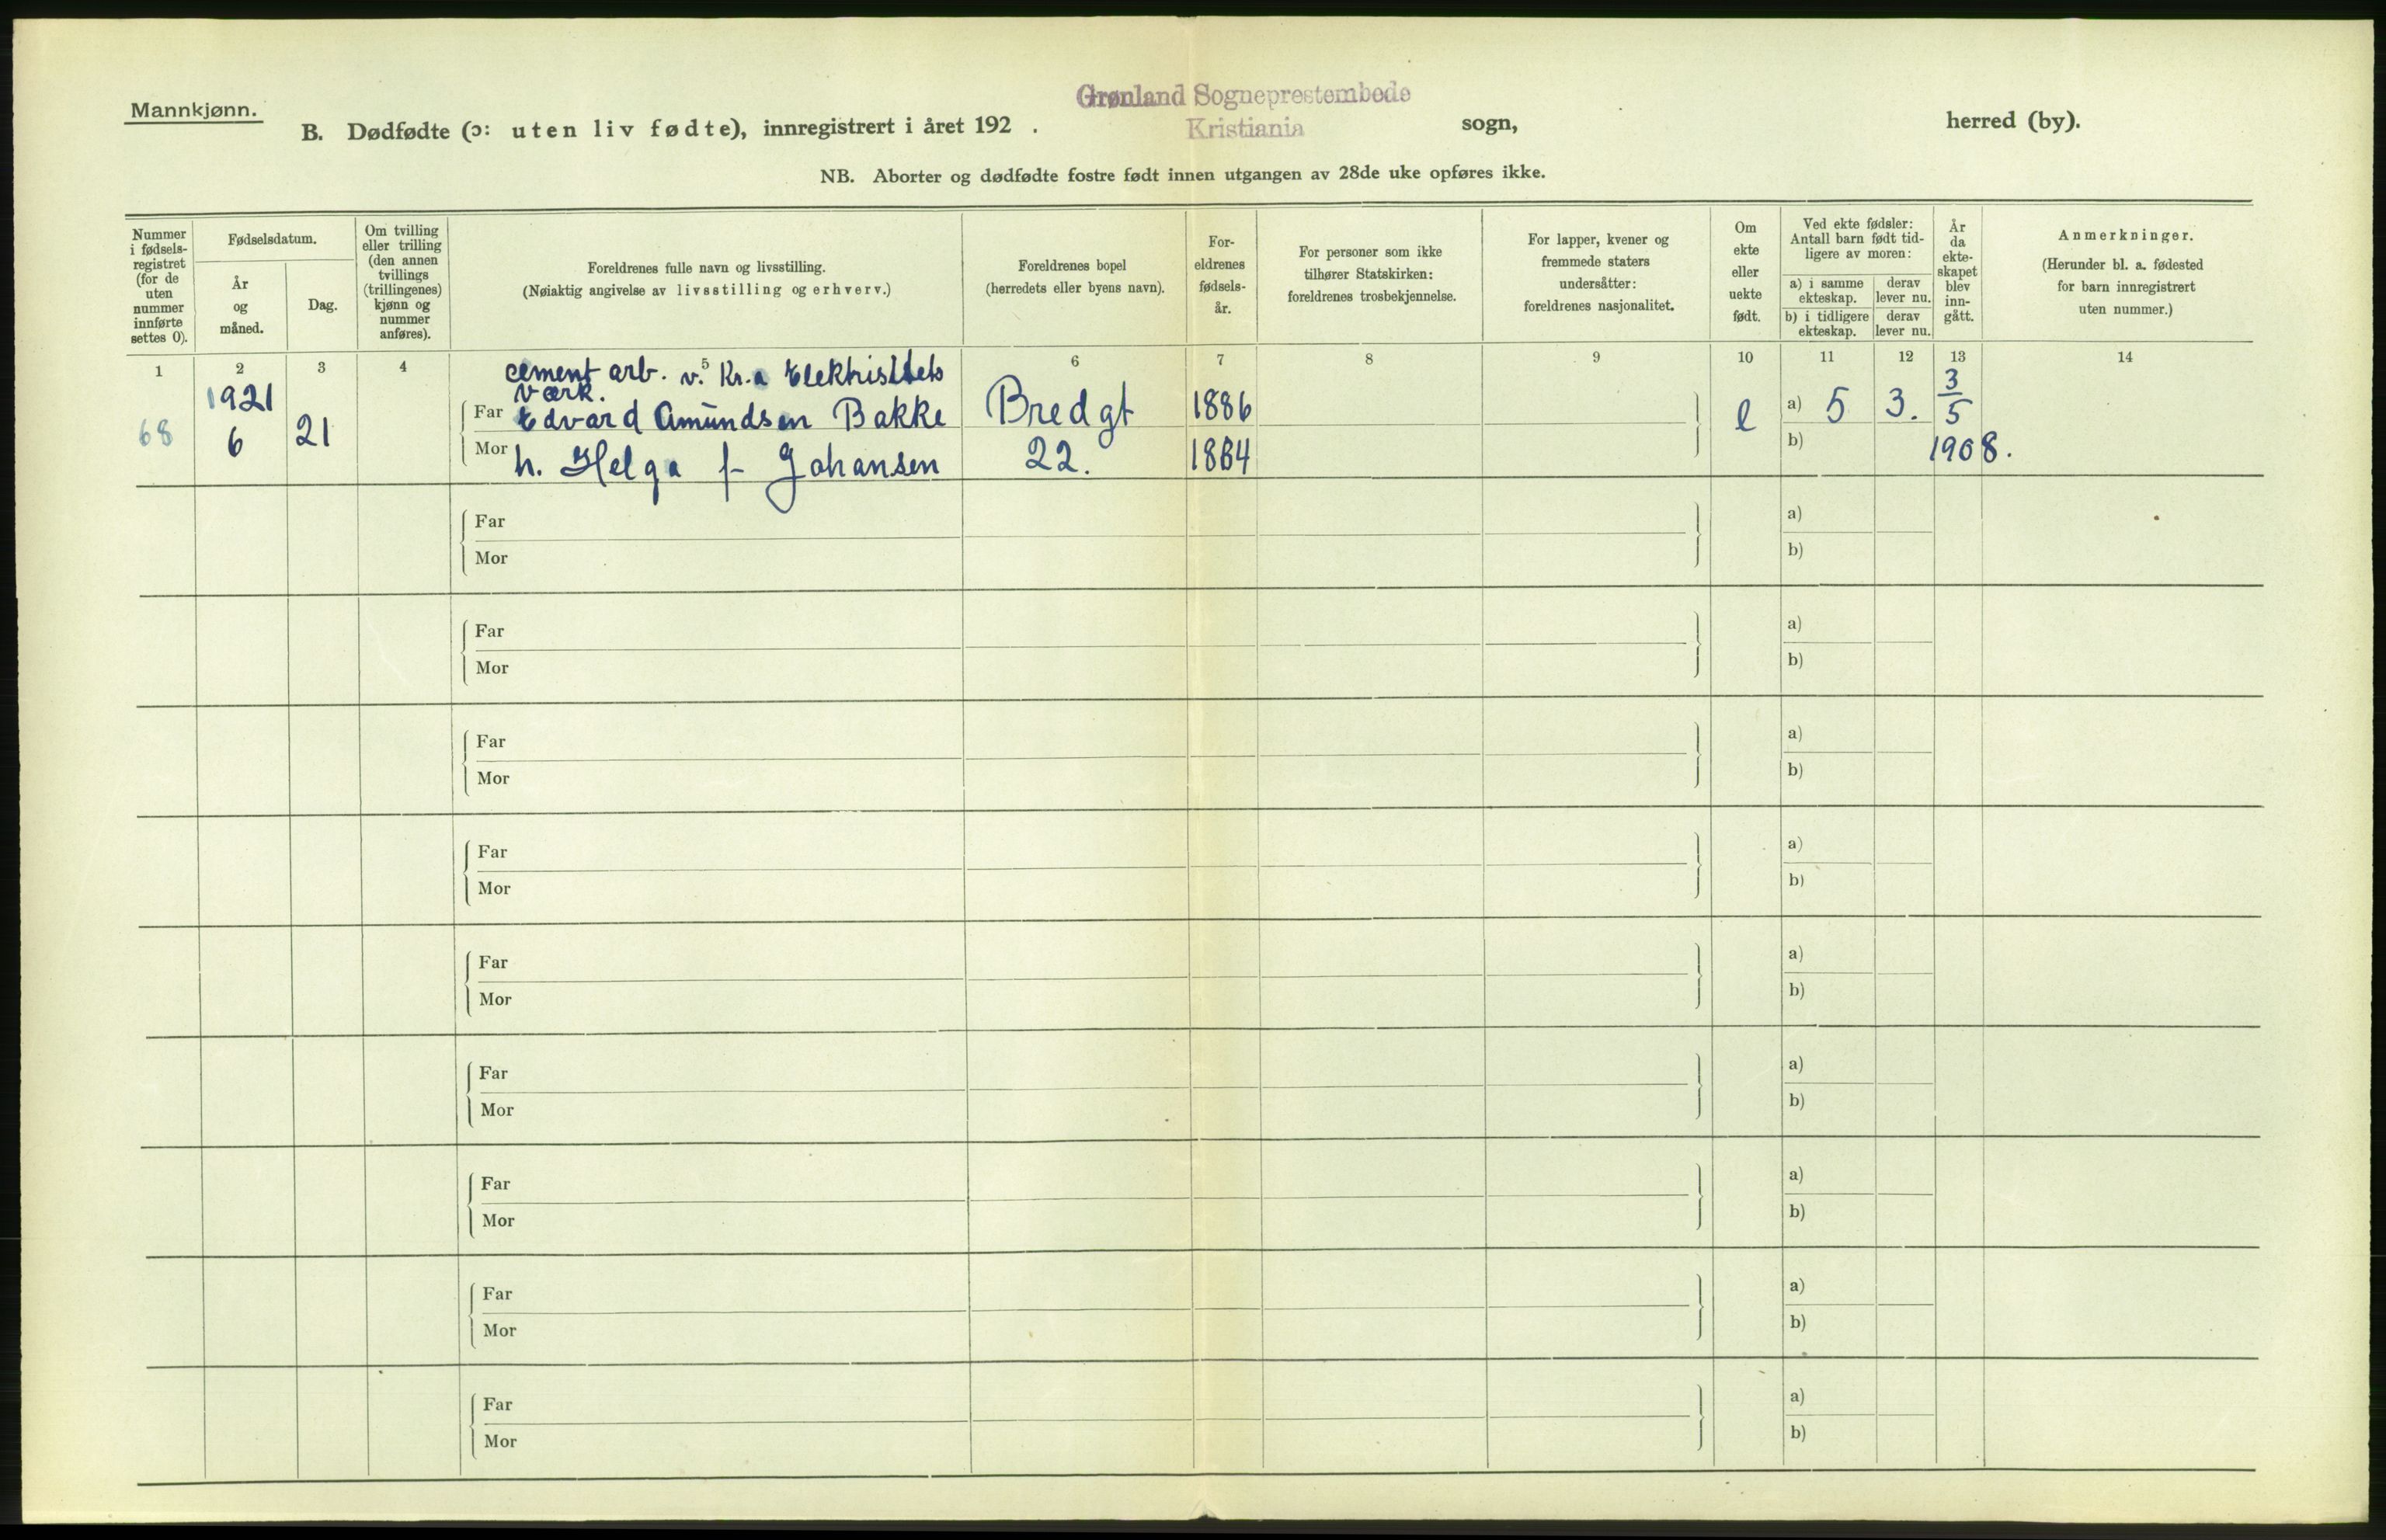 Mannkjønn.
Grønland Sogneprestembede
Kristiania
B. Dødfødte (ɔ: uten liv fødte), innregistrert i året 192 . sogn, herred (by).
NB. Aborter og dødfødte fostre født innen utgangen av 28de uke opføres ikke.
Nummer
i fødsels-
registret
(for de
uten
nummer
innførte
settes 0).
Fødselsdatum.
År
og
måned.
Dag.
Om tvilling
eller trilling
(den annen
tvillings
(trillingenes)
kjønn og
nummer
anføres).
Foreldrenes fulle navn og livsstilling.
(Nøiaktig angivelse av livsstilling og erhverv.)
Foreldrenes bopel
(herredets eller byens navn).
For-
eldrenes
fødsels-
år.
For personer som ikke
tilhører Statskirken:
foreldrenes trosbekjennelse.
For lapper, kvener og
fremmede staters
undersåtter:
foreldrenes nasjonalitet.
Om
ekte
eller
uekte
født.
Ved ekte fødsler:
Antall barn født tid-
ligere av moren:
a) i samme
ekteskap.
derav
lever nu.
b) i tidligere
ekteskap.
derav
lever nu.
År
da
ekte-
skapet
blev
inn-
gått.
Anmerkninger.
(Herunder bl. a. fødested
for barn innregistrert
uten nummer.)
1 2 3 4 5 6 7 8 9 10 11 12 13 14
cement arb. v. Kr.a
værk.
68 1921 6 21
Far Edvard Amundsen Bakke Bredgt 1886 e a) 5 3. 3/5
Mor h. Helga f- Johansen 22. 1884 b) 1908.
Far a)
Mor b)
Far a)
Mor b)
Far a)
Mor b)
Far a)
Mor b)
Far a)
Mor b)
Far a)
Mor b)
Far a)
Mor b)
Far a)
Mor b)
Far a)
Mor b)